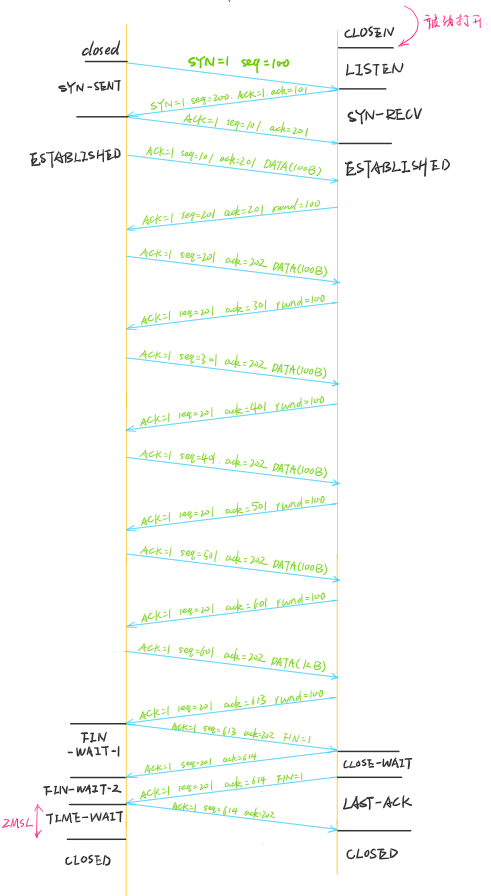 CLOSEN
被动打开
closed
SYN=1 seq=100
LISTEN
SYN-SENT
SYN=1 seq=200. ACK=1 ack=101
ACK=1 seq=101 ack=201
SYN-RECV
ESTABLISHED
ACK=1 seq=101 ack=201 DATA(100B)
ESTABLISHED
ACK=1 seq=201 ack=201 rwnd=100
ACK=1 seq=201. ack=202 DATA(100B)
ACK=1 seq=201 ack=301 rwnd=100
ACK=1 seq=301. ack=202 DATA(100B)
ACK=1 seq=201 ack=401 rwnd=100
ACK=1 seq=401. ack=202 DATA(100B)
ACK=1 seq=201 ack=501 rwnd=100
ACK=1 seq=501. ack=202 DATA(100B)
ACK=1 seq=201 ack=601 rwnd=100
ACK=1 seq=601. ack=202 DATA(12B)
ACK=1 seq=201 ack=613 rwnd=100
ACK=1 seq=613 ack=202 FIN=1
FIN
-WAIT-1
ACK=1 seq=201 ack=614
CLOSE-WAIT
ACK=1 seq=201 ack=614 FIN=1
FIN-WAIT-2
ACK=1 seq=614 ack=202
LAST-ACK
2MSL
TIME-WAIT
CLOSED
CLOSED